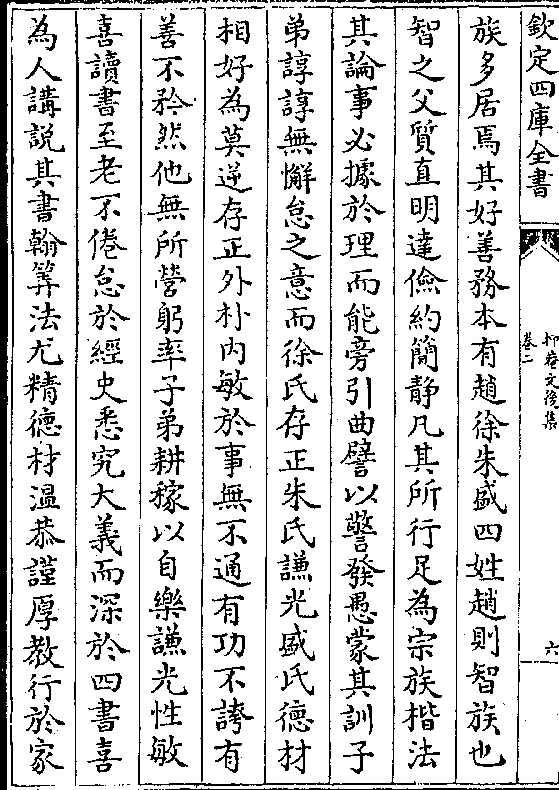 欽定四庫全書
抑菴文後集
卷二
六
族多居焉其好善務本有趙徐朱盛四姓趙則智族也
智之父質直明達儉約簡靜凡其所行足為宗族楷法
其論事必據於理而能旁引曲譬以警發愚蒙其訓子
弟諄諄無懈怠之意而徐氏存正朱氏謙光盛氏德材
相好為莫逆存正外朴内敏於事無不通有功不誇有
善不矜然他無所營躬率子弟耕稼以自樂謙光性敏
喜讀書至老不倦怠於經史悉究大義而深於四書喜
為人講說其書翰筭法尤精德材温恭謹厚教行於家